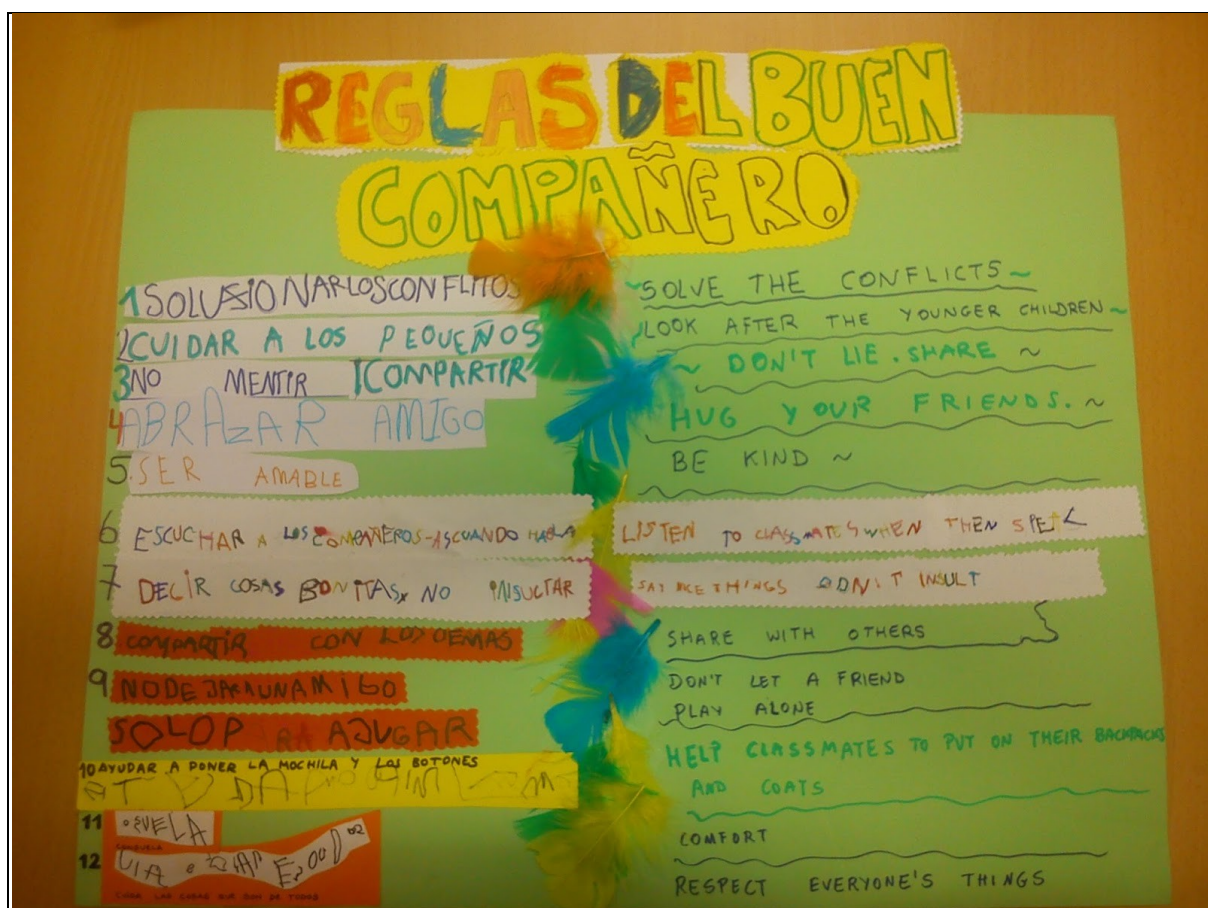 REGLAS DEL BUEN
COMPAÑERO
1 SOLUSIONAR LOS CONFLITOS
2 CUIDAR A LOS PEQUEÑOS
3 NO MENTIR COMPARTIR
4 ABRAZAR AMIGO
5. SER AMABLE
6 ESCUCHAR A LOS COMPAÑEROS-AS CUANDO HABLA
7 DECIR COSAS BONITAS, NO INSULTAR
8 COMPARTIR CON LOS DEMAS
9 NO DEJAR A UN AMIGO
SOLO PARA AJUGAR
10 AYUDAR A PONER LA MOCHILA Y LOS BOTONES
11
CONSUELA
12
CUIDA LAS COSAS QUE SON DE TODOS
~SOLVE THE CONFLICTS~
LOOK AFTER THE YOUNGER CHILDREN~
~ DON'T LIE. SHARE ~
HUG YOUR FRIENDS. ~
BE KIND ~
LISTEN TO CLASSMATES WHEN THEN SPEK
SAY NICE THINGS DON'T INSULT
SHARE WITH OTHERS
DON'T LET A FRIEND
PLAY ALONE
HELP CLASSMATES TO PUT ON THEIR BACKPACKS
AND COATS
COMFORT
RESPECT EVERYONE'S THINGS